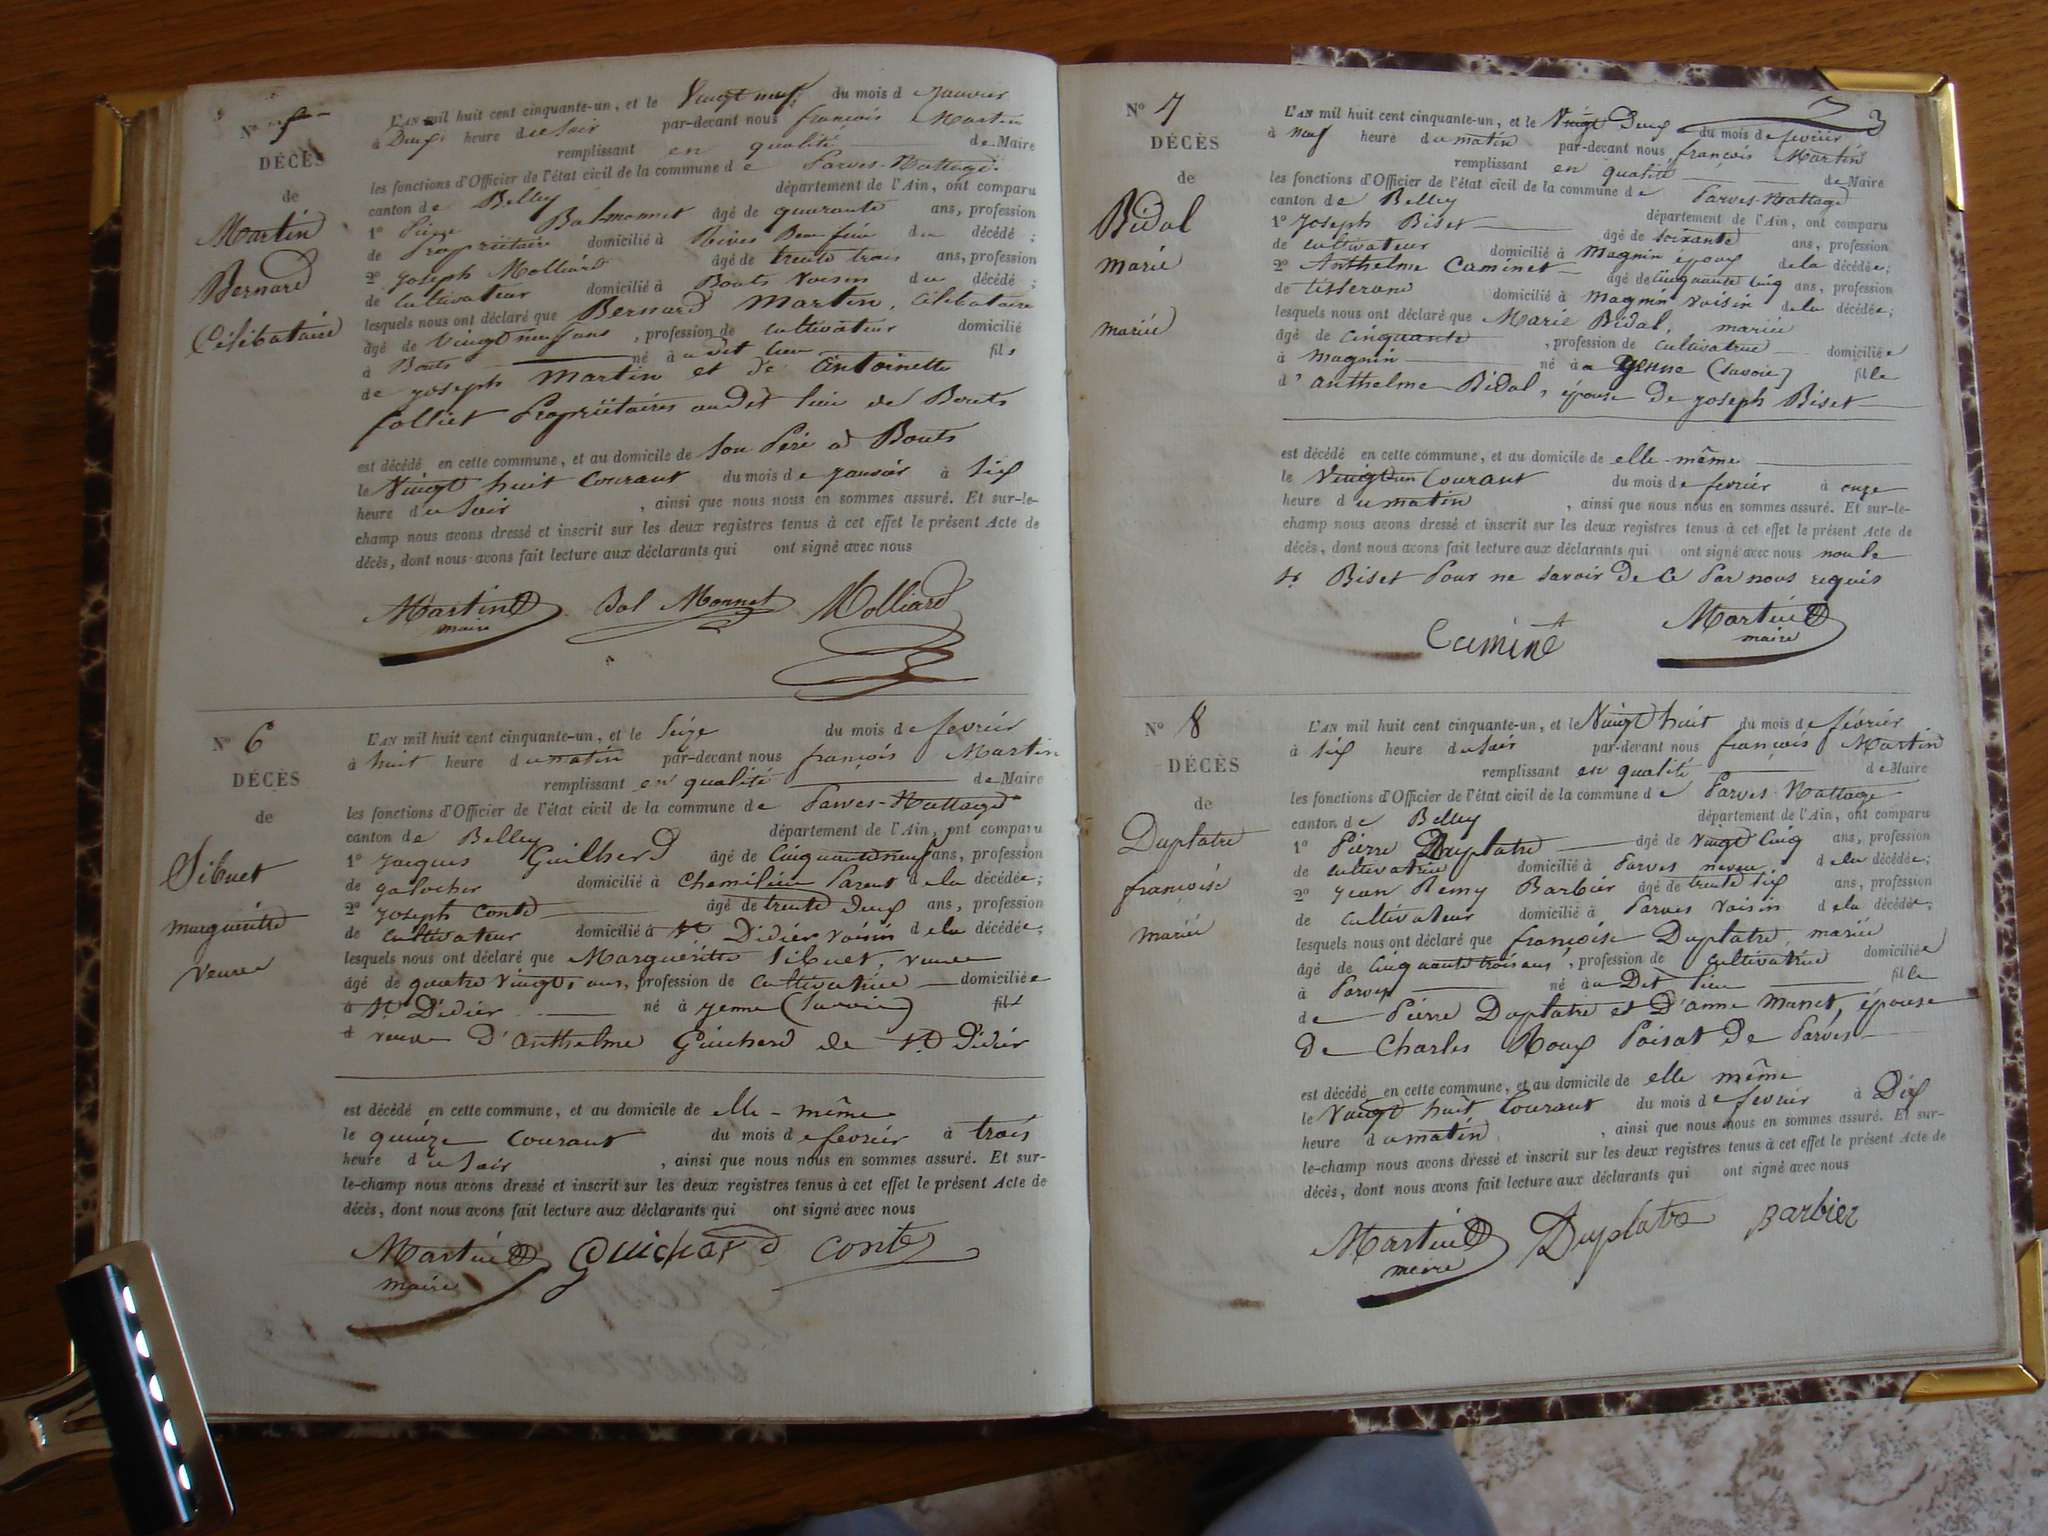 N° 5
DÉCÈS
de
Martin
Bernard
Célibataire
L'AN mil huit cent cinquante-un, et le Vingt neuf du mois d janvier
à Deux heure du soir par-devant nous françois Martin
remplissant en qualité de Maire
les fonctions d'Officier de l'état civil de la commune de Parves-Nattage
canton de Belley département de l'Ain, ont comparu
1° Pierre Bal monnet âgé de quarante ans, profession
de Propriétaire domicilié à Rives Beau frère du décédé ;
2° joseph Molliard âgé de trente trois ans, profession
de cultivateur domicilié à Bouts voisin du décédé ;
lesquels nous ont déclaré que Bernard Martin, célibataire
âgé de vingt neuf ans, profession de cultivateur domicilié
à Bouts né à u dit lieu fils
de joseph Martin et de antoinette
folliet Propriétaires audit lieu de Bouts
est décédé en cette commune, et au domicile de son Père à Bouts
le Vingt huit courant du mois de janvier à six
heure du soir, ainsi que nous nous en sommes assuré. Et sur-le-
champ nous avons dressé et inscrit sur les deux registres tenus à cet effet le présent Acte de
décès, dont nous avons fait lecture aux déclarants qui ont signé avec nous
Martin Bal Monnet Molliard
maire
N° 6
DÉCÈS
de
Sibuet
margueritte
veuve
L'AN mil huit cent cinquante-un, et le Seize du mois de fevrier
à huit heure du matin par-devant nous françois Martin
remplissant en qualité de Maire
les fonctions d'Officier de l'état civil de la commune de Parves-Nattage
canton de Belley département de l'Ain, ont comparu
1° jacques Guilherd âgé de cinquante neuf ans, profession
de galocher domicilié à chemilieu Parent de la décédée ;
2° joseph conte âgé de trente deux ans, profession
de cultivateur domicilié à St Didier voisin de la décédée,
lesquels nous ont déclaré que Marguéritte Sibuet, veuve
âgé de quatre vingts ans, profession de cultivatrice domiciliée
à St Didier né à yenne (Savoie) fil
d veuve d'anthelme Guicherd de St Didier
est décédé en cette commune, et au domicile de elle-même
le quinze courant du mois de fevrier à trois
heure du soir, ainsi que nous nous en sommes assuré. Et sur-
le-champ nous avons dressé et inscrit sur les deux registres tenus à cet effet le présent Acte de
décès, dont nous avons fait lecture aux déclarants qui ont signé avec nous
Martin Guicherd conte
maire
3
N° 7
DÉCÈS
de
Bidal
marie
mariée
L'AN mil huit cent cinquante-un, et le Vingt Deux du mois de fevrier
à neuf heure du matin par-devant nous françois Martin
remplissant en qualité de Maire
les fonctions d'Officier de l'état civil de la commune de Parves-Nattage
canton de Belley département de l'Ain, ont comparu
1° joseph Biset âgé de soixante ans, profession
de cultivateur domicilié à Magnin époux de la décédée ;
2° Anthelme Caminet âgé de cinquante cinq ans, profession
de tisserand domicilié à magnin voisin de la décédée ;
lesquels nous ont déclaré que Marie Bidal, mariée
âgé de cinquante, profession de cultivatrice domiciliée
à magnin né à yenne (Savoie) fille
d'anthelme Bidal, épouse de joseph Biset
est décédé en cette commune, et au domicile de elle-même
le Vingt un courant du mois de fevrier à onze
heure du matin, ainsi que nous nous en sommes assuré. Et sur-le-
champ nous avons dressé et inscrit sur les deux registres tenus à cet effet le présent Acte de
décès, dont nous avons fait lecture aux déclarants qui ont signé avec nous non le
sr Biset Pour ne savoir de ce Par nous requis
Caminet Martin
maire
N° 8
DÉCÈS
de
Duplatre
françoise
mariée
L'AN mil huit cent cinquante-un, et le Vingt huit du mois de février
à six heure du soir par-devant nous françois Martin
remplissant en qualité de Maire
les fonctions d'Officier de l'état civil de la commune de Parves-Nattage
canton de Belley département de l'Ain, ont comparu
1° Pierre Duplatre âgé de vingt cinq ans, profession
de cultivatrice domicilié à Parves neveu de la décédée ;
2° jean Remy Barbier âgé de trente six ans, profession
de cultivateur domicilié à Parves voisin de la décédée,
lesquels nous ont déclaré que françoise Duplatre, mariée
âgé de cinquante trois ans, profession de cultivatrice domiciliée
à Parves né à u Dit lieu fille
de Pierre Duplatre et D'anne Manet, épouse
De Charles Roux Poisat De Parves
est décédé en cette commune, et au domicile de elle même
le Vingt huit Courant du mois de fevrier à Dix
heure du matin, ainsi que nous nous en sommes assuré. Et sur-
le-champ nous avons dressé et inscrit sur les deux registres tenus à cet effet le présent Acte de
décès, dont nous avons fait lecture aux déclarants qui ont signé avec nous
Martin Duplatre Barbier
maire